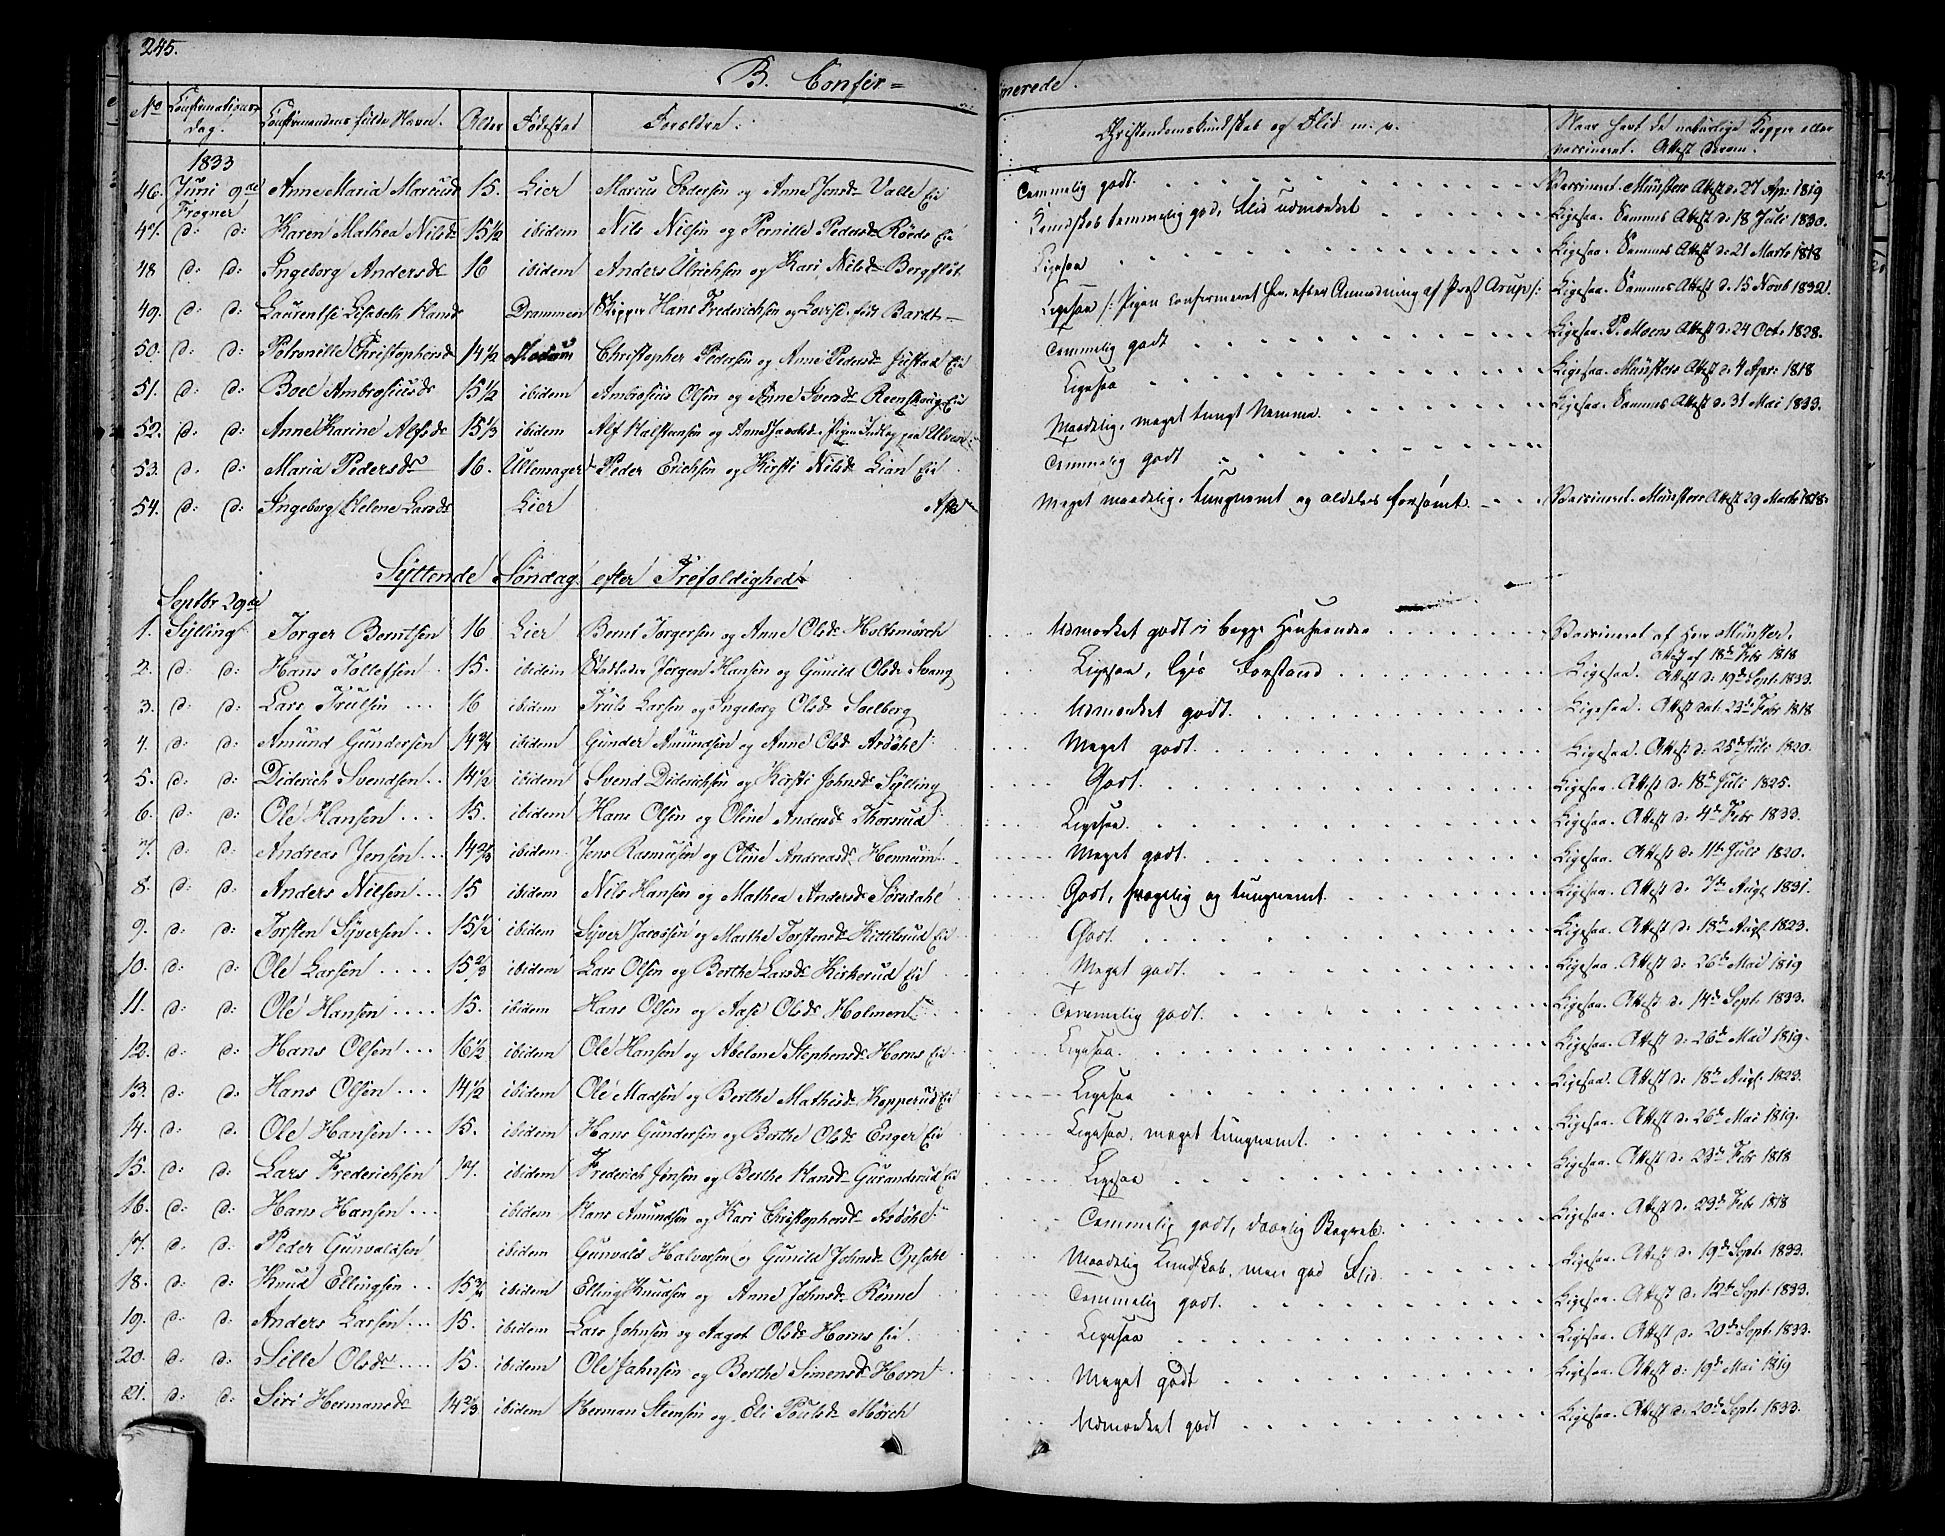 245.
B. Confir= merede.
No Confirmations dag. Confirmandens fulde Navn. Alder Fødested Forældre. Christendomskundskab og Flid m: v: Naar havt de naturlige Kopper eller vaccineret. Attest derom.
1833
46. Juni 9de Anne Maria Marcusd 15. Lier Marcus Pedersen og Anne Jensd Valle Eie Temmelig godt. Vaccineret. Münsters Attest d: 27 Apr: 1819
Frogner
47. d: d: Karen Mathea Nilsd 15 1/2 ibidem Nils Nilsen og Pernille Pedersd Røeds Eie Kundskab temmelig god, Flid udmærket Ligesaa. Sammes Attest d: 18 Juli 1830.
48 d: d: Ingeborg Andersd 16 ibidem Anders Ulrichsen og Kari Nilsd Bergflöt Ligesaa Ligesaa. Sammes Attest d: 21 Marts 1818
49. d: d: Laurentse Lisabeth Hansd Drammen Skipper Hans Frederichsen og Lovise født Bardt Ligesaa /: Pigen confirmeret her efter Anmodning af Prest Arup :/ Ligesaa. Sammes Attest d: 15 Novb 1832.
50. d: d: Petronille Christophersd 14 1/2 Modum Christopher Pedersen og Anne Pedersd Eie Temmelig godt Ligesaa. P. Moens Attest d: 24 Oct. 1828.
51. d: d: Boel Ambrosiusd 15 1/2 ibidem Ambrosius Olsen og Anne Iversd Reenskoug Eie Ligesaa Ligesaa. Münsters Attest d: 4 Apr: 1818
52. d: d: Anne Karine Alfsd 15 1/3 ibidem Alf Halstensen og Anne Maadelig, meget tungt Nemme. Ligesaa. Sammes Attest d: 31 Mai 1833.
53. d: d: Maria Pedersd 16. Ullensager Peder Erichsen og Kirsti Nilsd Lian Eie Temmelig godt
54. d: d: Ingeborg Helene Larsd Lier Ask Meget maadelig, tungnemt og aldeles forsømt. Vaccineret. Münsters Attest 29 Marts 1818.
Syttende Söndag efter Trefoldighed
Septbr 29de
1. Sylling Torger Berntsen 16 Lier Bernt Torgersen og Anne Olsd Holtsmörch Udmærket godt i begge Henseender Vaccineret af Herr Münster.
Attest af 18de Febr 1818
2. d: d: Hans Tollefsen 15. ibidem Jörgen Hansen og Gunild Olsd Svang Ligesaa, Forstand Ligesaa. Attest d: 19de Sept. 1833.
3. d: d: Lars Trulsen 16 ibidem Truls Larsen og Ingeborg Olsd Solberg Udmærket godt. Ligesaa. Attest dat. 23de Febr 1818
4. d: d: Amund Gundersen 14 3/4 ibidem Gunder Amundsen og Anne Olsd Asdöhl Meget godt. Ligesaa. Attest d: 25de Juli 1820.
5. d: d: Diderich Svendsen 14 1/2 ibidem Svend Diderichsen og Kirsti Johnsd Sylling Godt. Ligesaa. Attest d: 18de Juli 1825.
6. d: d: Ole Hansen 15. ibidem Hans Olsen og Oline Andersd Thorsrud Ligesaa. Ligesaa. Attest d: 4de Febr 1833.
7. d: d: Andreas Jensen 14 2/3 ibidem Jens Rasmusen og Oline Andreasd Hennum Meget godt. Ligesaa. Attest d: 11te Juli 1820.
8. d: d: Anders Nilsen 15 ibidem Nils Hansen og Mathea Andersd Sørsdahl Godt, og tungnemt. Ligesaa. Attest d: 7de Augt 1831.
9. d: d: Torsten Syversen 15 1/2 ibidem Syver Jacobsen og Marthe Torstensd Kittilsrud Eie Godt. Ligesaa. Attest d: 18de Augt 1823.
10. d: d: Ole Larsen 15 2/3 ibidem Lars Olsen og Berthe Larsd Kirkerud Eie Meget godt. Ligesaa. Attest d: 26de Mai 1819
11. d: d: Ole Hansen 15. ibidem Hans Olsen og Aase Olsd Holmen Temmelig godt. Ligesaa. Attest d: 14de Sept. 1833.
12. d: d: Hans Olsen 16 1/2 ibidem Ole Hansen og Abelone Stephensd Horns Eie Ligesaa. Ligesaa. Attest d: 26de Mai 1819.
13. d: d: Hans Olsen 14 1/2 ibidem Ole Madsen og Berthe Mathisd Kopperud Eie Ligesaa Ligesaa. Attest d: 18de Augt 1823.
14. d: d. Ole Hansen 15. ibidem Hans Gundersen og Berthe Olsd Enger Eie Ligesaa, meget tungnemt. Ligesaa. Attest d: 26de Mai 1819.
15. d: d: Lars Frederichsen 17. ibidem Frederich Jensen og Berthe Hansd Guranderud Eie Ligesaa Ligesaa. Attest d: 23de Febr 1818
16. d: d: Hans Hansen ibidem Hans Amundsen og Kari Christophersd Asdöhl Temmelig godt, daarlig Begreb. Ligesaa. Attest d: 23de Febr 1818
17. d: d: Peder Gunvaldsen ibidem Gunvald Halvorsen og Gunild Johnsd Opsahl Maadelig Kundskab, men god Flid. Ligesaa. Attest d. 19de Sept. 1833.
18. d: d: Knud Ellingsen 15 3/4 ibidem Elling Knudsen og Anne Johnsd Rönne Temmelig godt. Ligesaa. Attest d. 12te Sept. 1833.
19. d: d: Anders Larsen 15. ibidem Lars Johnsen og Aagot Olsd Horns Eie Ligesaa Ligesaa. Attest d: 20de Sept. 1833.
20. d: d: Sille Olsd 15. ibidem Ole Jahnsen og Berthe Simensd Horn Meget godt Ligesaa. Attest d: 19de Mai 1819
21. d: d: Siri Hermansd 14 2/3 ibidem Herman Steensen og Eli Poulsd Mörch Udmærket godt Ligesaa. Attest d: 20de Sept. 1833.